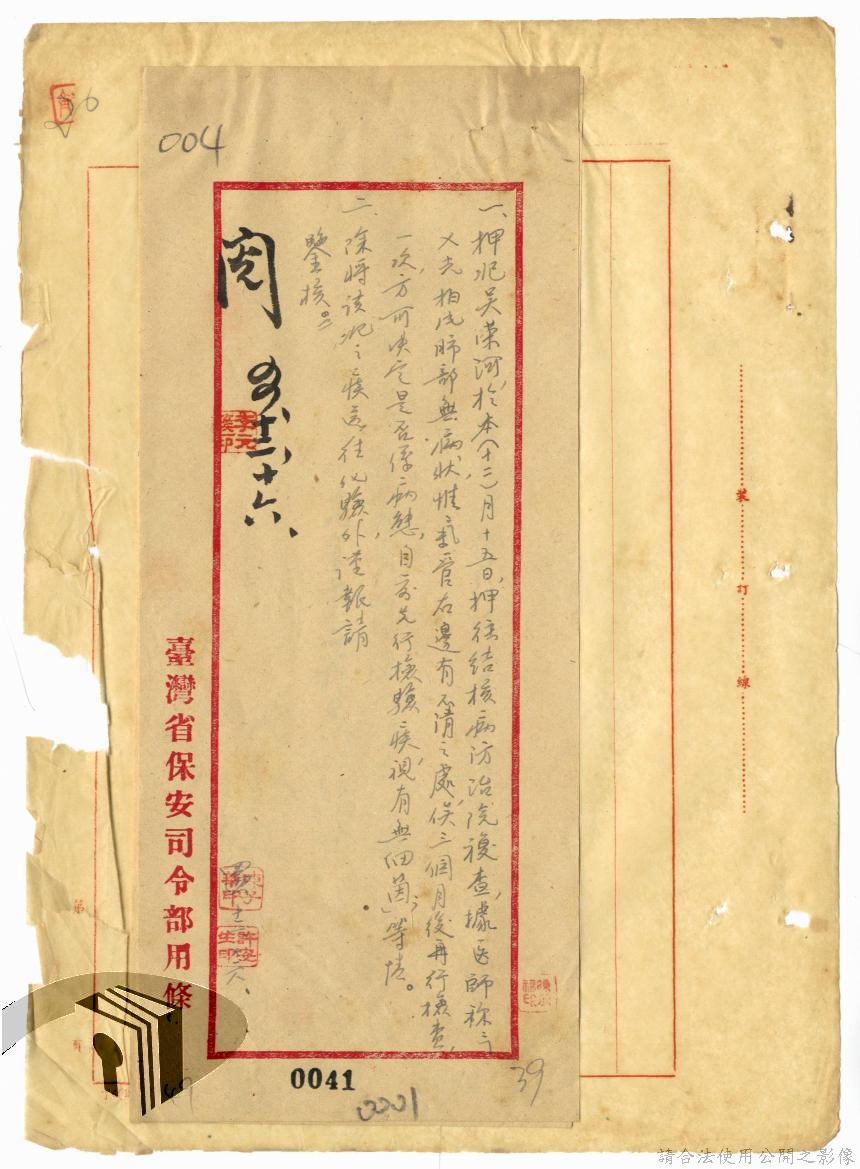 004
一、押犯吳榮河，於本(十二)月十五日，押往結核病防治院複查，據医師称：「
X光相片肺部無病狀，惟氣管右邊有不清之處，俟三個月後再行檢查，
一次，方可決定是否係病態，目前先行檢驗痰，視有無細菌」等情。
二、除將該犯之痰送往化驗外謹報請
鑒核。
閱
十二、十六、
臺灣省保安司令部用條
裝 訂 線
第
頁
0041
0001
39
請合法使用公開之影像